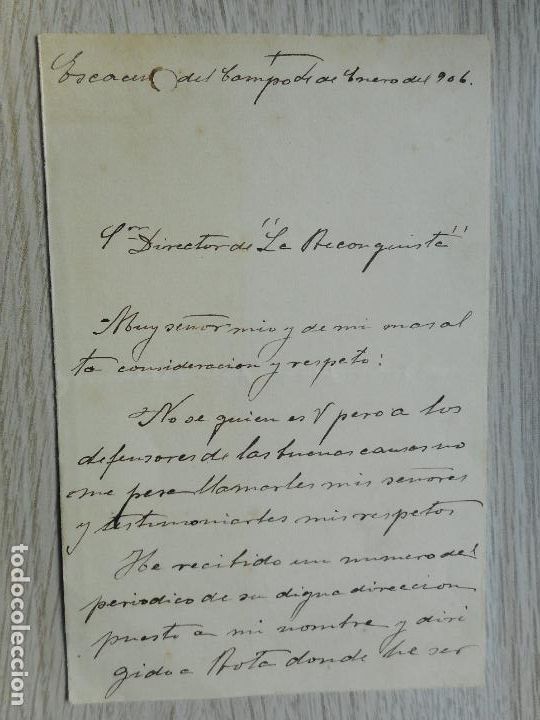 Escacena del Campo de Enero del 906.
Sr. Director de "La Reconquista"
Muy señor mio y de mi mas al
ta consideracion y respeto:
No se quien es V pero a los
defensores de las buenas causas no
me pesa llamarles mis señores
y testimoniarles mis respetos
He recibido un numero del
periodico de su digna direccion
puesto a mi nombre y diri
gido a Rota donde he ser
todocoleccion.net